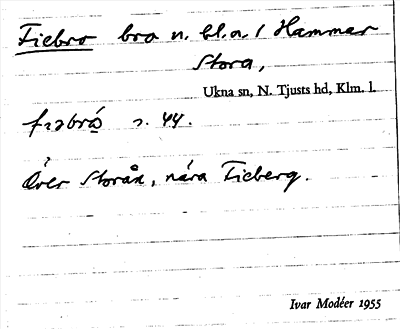 Fiebro bro n. bl.a. / Hammar
Stora,
Ukna sn, N. Tjusts hd, Klm. l.
s. 44.
Över Storån, nära Fieberg.
Ivar Modéer 1955